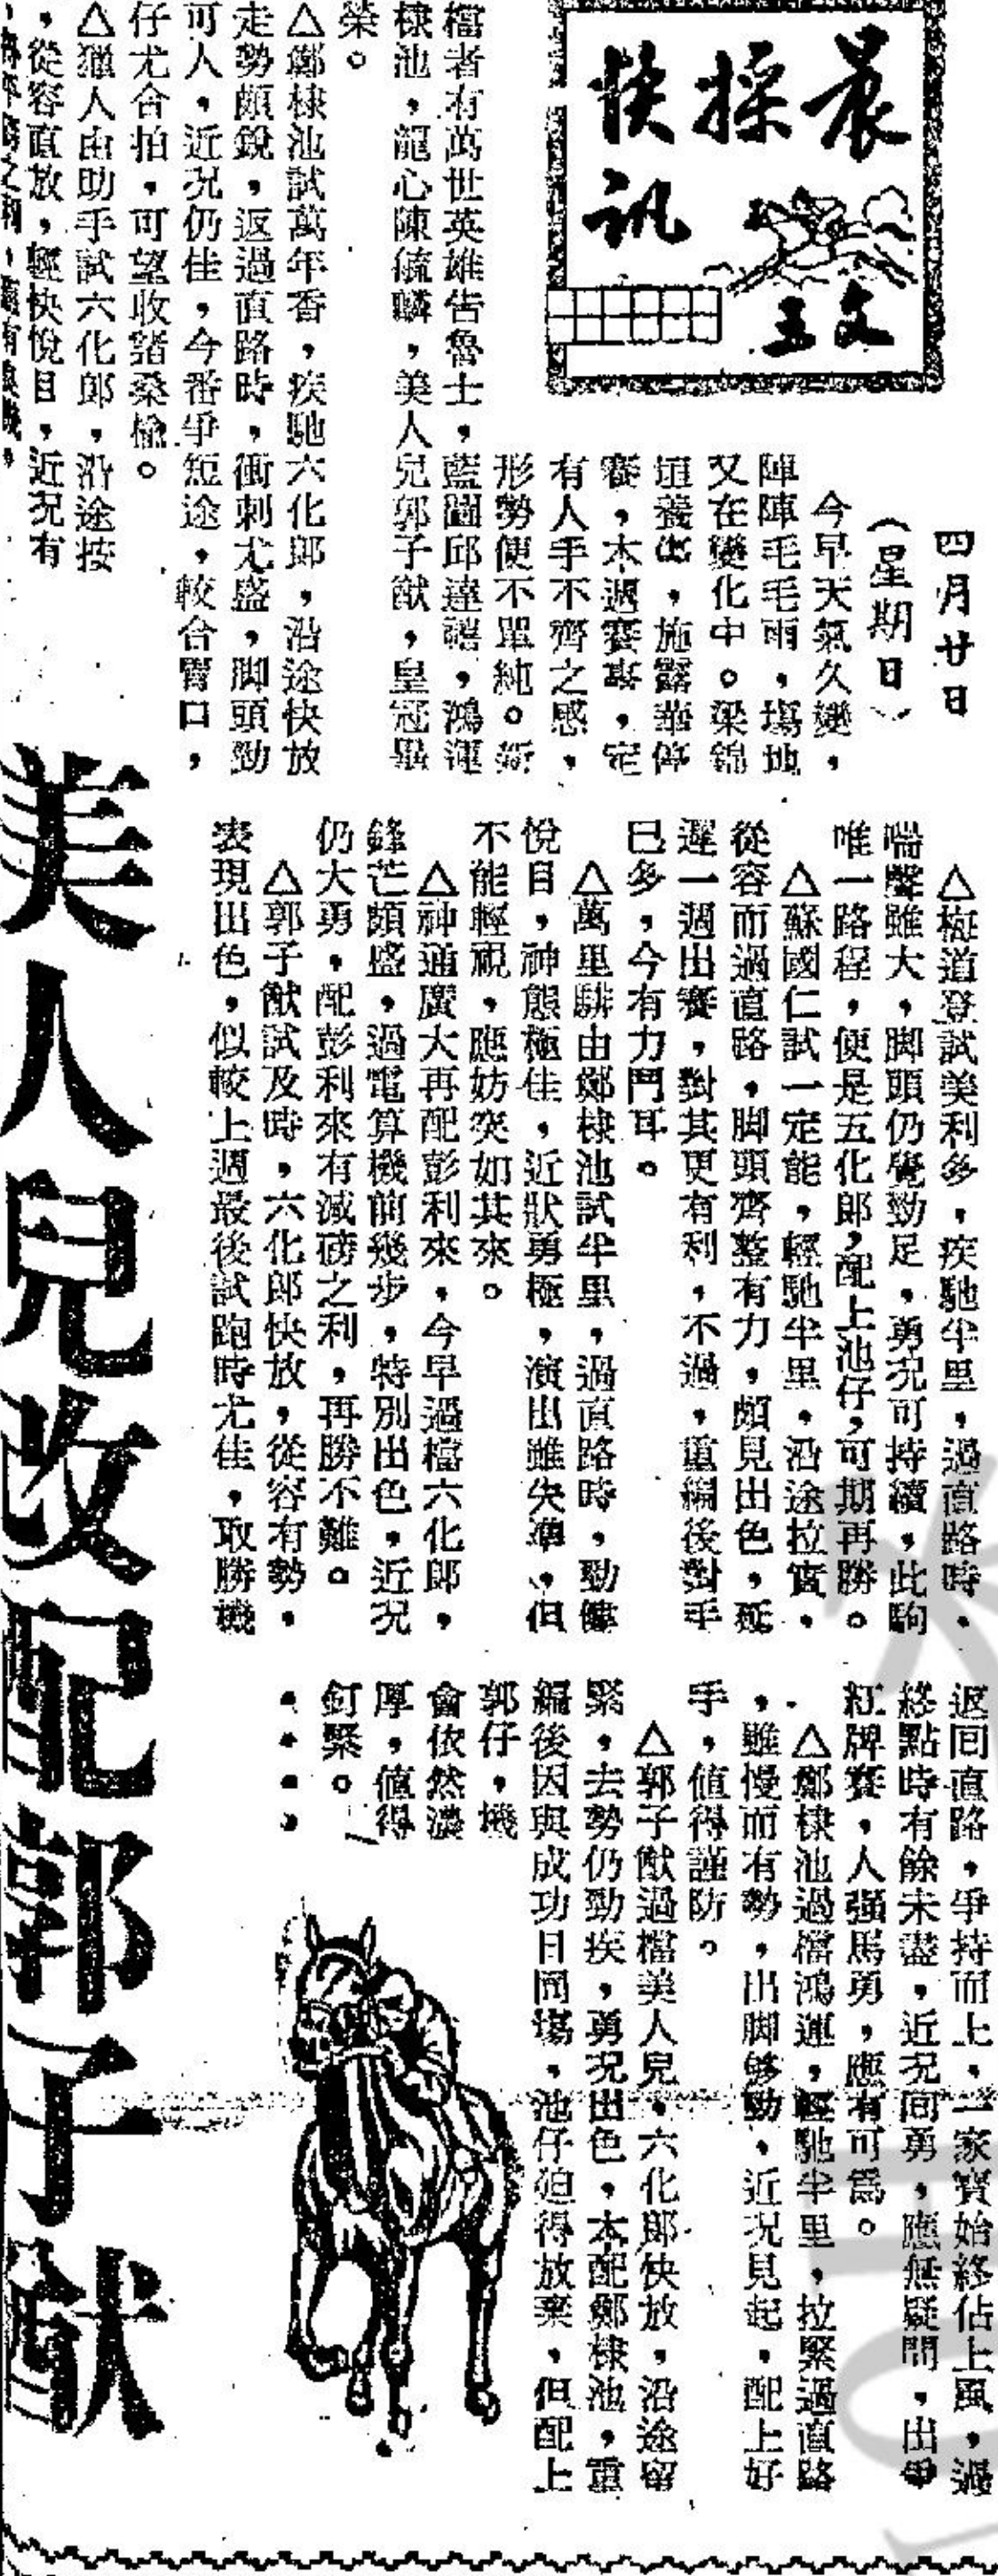 晨採快訊
文王
美人兒改配郭子猷
四月廿日
(星期日)
今早天氣久變，
陣陣毛毛雨，塲地
又在變化中。梁錦
垣養傷，施露華停
賽，本週賽事，定
有人手不齊之感，
形勢便不單純。新
檔者有萬世英雄告魯士，藍圖邱達禧，鴻運
棣池，龍心陳毓麟，美人兒郭子猷，皇冠畢
榮。
△鄭棣池試萬年香，疾馳六化郎，沿途快放
走勢頗銳，返過直路時，衝刺尤盛，脚頭勁
可人，近況仍佳，今番爭短途，較合胃口，
仔尤合拍，可望收諸桑榆。
△獵人由助手試六化郎，沿途按
，從容直放，輕快悅目，近況有
△梅道登試美利多，疾馳半里，過直路時，
喘聲雖大，脚頭仍覺勁足，勇況可持續，此駒
唯一路程，便是五化郎，配上池仔，可期再勝。
△蘇國仁試一定能，輕馳半里，沿途拉實，
從容而過直路，脚頭齊整有力，頗見出色，延
遲一週出賽，對其更有利，不過，重編後對手
已多，今有力鬥耳。
△萬里騑由鄭棣池試半里，過直路時，勁健
悅目，神態極佳，近狀勇極，演出雖失準，但
不能輕視，應妨突如其來。
△神通廣大再配彭利來，今早過檔六化郎，
鋒芒頗盛，過電算機前幾步，特別出色，近況
仍大勇，配彭利來有減磅之利，再勝不難。
△郭子猷試及時，六化郎快放，從容有勢，
表現出色，似較上週最後試跑時尤佳，取勝機
返回直路，爭持而上，一家寶始終佔上風，過
終點時有餘未盡，近況同勇，應無疑問，出爭
紅牌賽，人强馬勇，應有可爲。
△鄭棣池過檔鴻運，輕馳半里，拉緊過直路
，雖慢而有勢，出脚够勁，近況見起，配上好
手，值得謹防。
△郭子猷過檔美人兒，六化郎快放，沿途留
緊，去勢仍勁疾，勇況出色，本配鄭棣池，重
編後因與成功日同塲，池仔迫得放棄，但配上
郭仔，機
會依然濃
厚，值得
釘緊。